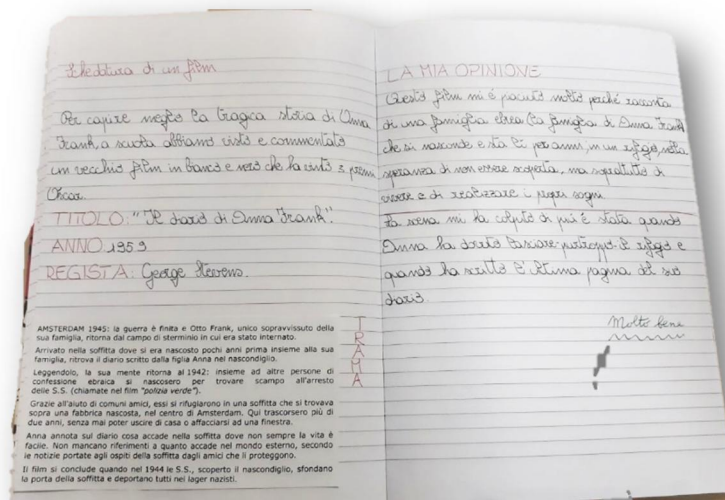 Schedatura di un film
Per capire meglio la tragica storia di Anna
Frank, a scuola abbiamo visto e commentato
un vecchio film in bianco e nero che ha vinto 3 premi
Oscar.
TITOLO: "Il diario di Anna Frank".
ANNO: 1959
REGISTA: George Stevens.
AMSTERDAM 1945: la guerra è finita e Otto Frank, unico sopravvissuto della
sua famiglia, ritorna dal campo di sterminio in cui era stato internato.
Arrivato nella soffitta dove si era nascosto pochi anni prima insieme alla sua
famiglia, ritrova il diario scritto dalla figlia Anna nel nascondiglio.
Leggendolo, la sua mente ritorna al 1942: insieme ad altre persone di
confessione ebraica si nascosero per trovare scampo all'arresto
delle S.S. (chiamate nel film "polizia verde").
Grazie all'aiuto di comuni amici, essi si rifugiarono in una soffitta che si trovava
sopra una fabbrica nascosta, nel centro di Amsterdam. Qui trascorsero più di
due anni, senza mai poter uscire di casa o affacciarsi ad una finestra.
Anna annota sul diario cosa accade nella soffitta dove non sempre la vita è
facile. Non mancano riferimenti a quanto accade nel mondo esterno, secondo
le notizie portate agli ospiti della soffitta dagli amici che li proteggono.
Il film si conclude quando nel 1944 le S.S., scoperto il nascondiglio, sfondano
la porta della soffitta e deportano tutti nei lager nazisti.
TRAMA
LA MIA OPINIONE
Questo film mi è piaciuto molto perché racconta
di una famiglia ebrea (la famiglia di Anna Frank)
che si nasconde e sta lì per anni, in un rifugio, nella
speranza di non essere scoperta, ma soprattutto di
vivere e di realizzare i propri sogni.
La scena mi ha colpito di più è stata quando
Anna ha dovuto lasciare purtroppo il rifugio e
quando ha scritto l'ultima pagina del suo
diario.
Molto bene